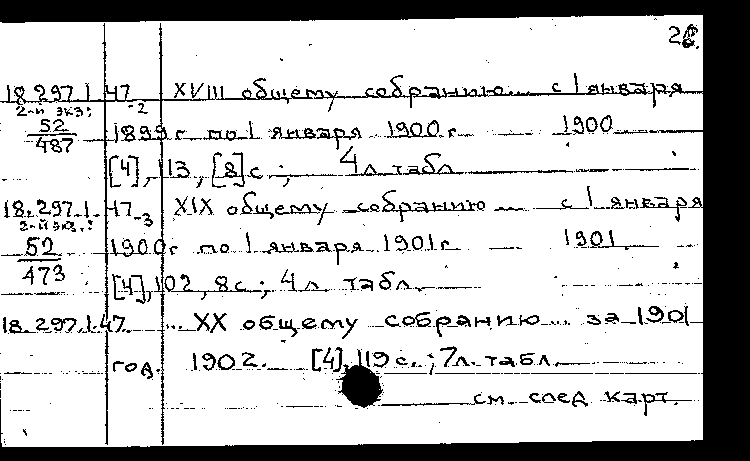 18.297.1.47-2 XVIII общему собранию... с 1 января
2-й экз:
52/487 1899 г по 1 января 1900 г. 1900
[4], 113, [8] с.; 4 л. табл.
18.297.1.47-3 XIX общему собранию... с 1 января
2-й экз.:
52/473 1900 г по 1 января 1901 г. 1901.
[4], 102, 8 с.; 4 л. табл.
18.297.1.47. ... XX общему собранию... за 1901
год. 1902. [4], 119 с.; 7 л. табл.
см. след карт.